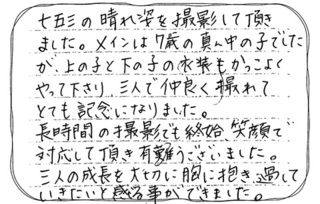 七五三の晴れ姿を撮影して頂き
ました。メインは7歳の真ん中の子でした
が、上の子と下の子の衣装もかっこよく
やって下さり、三人で仲良く撮れて
とても記念になりました。
長時間の撮影でも終始笑顔で
対応して頂き有難うございました。
三人の成長を大切に胸に抱き過して
いきたいと感る事ができました。